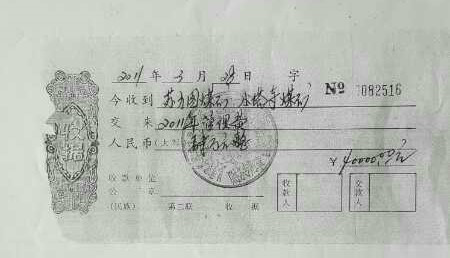 2011 年 3 月 29 日 字 № 7082516
今收到 苏方图煤矿 水塔寺煤矿
交来 2011年管理费
人民币(大写) 肆万元整
¥ 40000.00元
收款单位
公章
收款人
交款人
(民族) 第二联 收据
收据